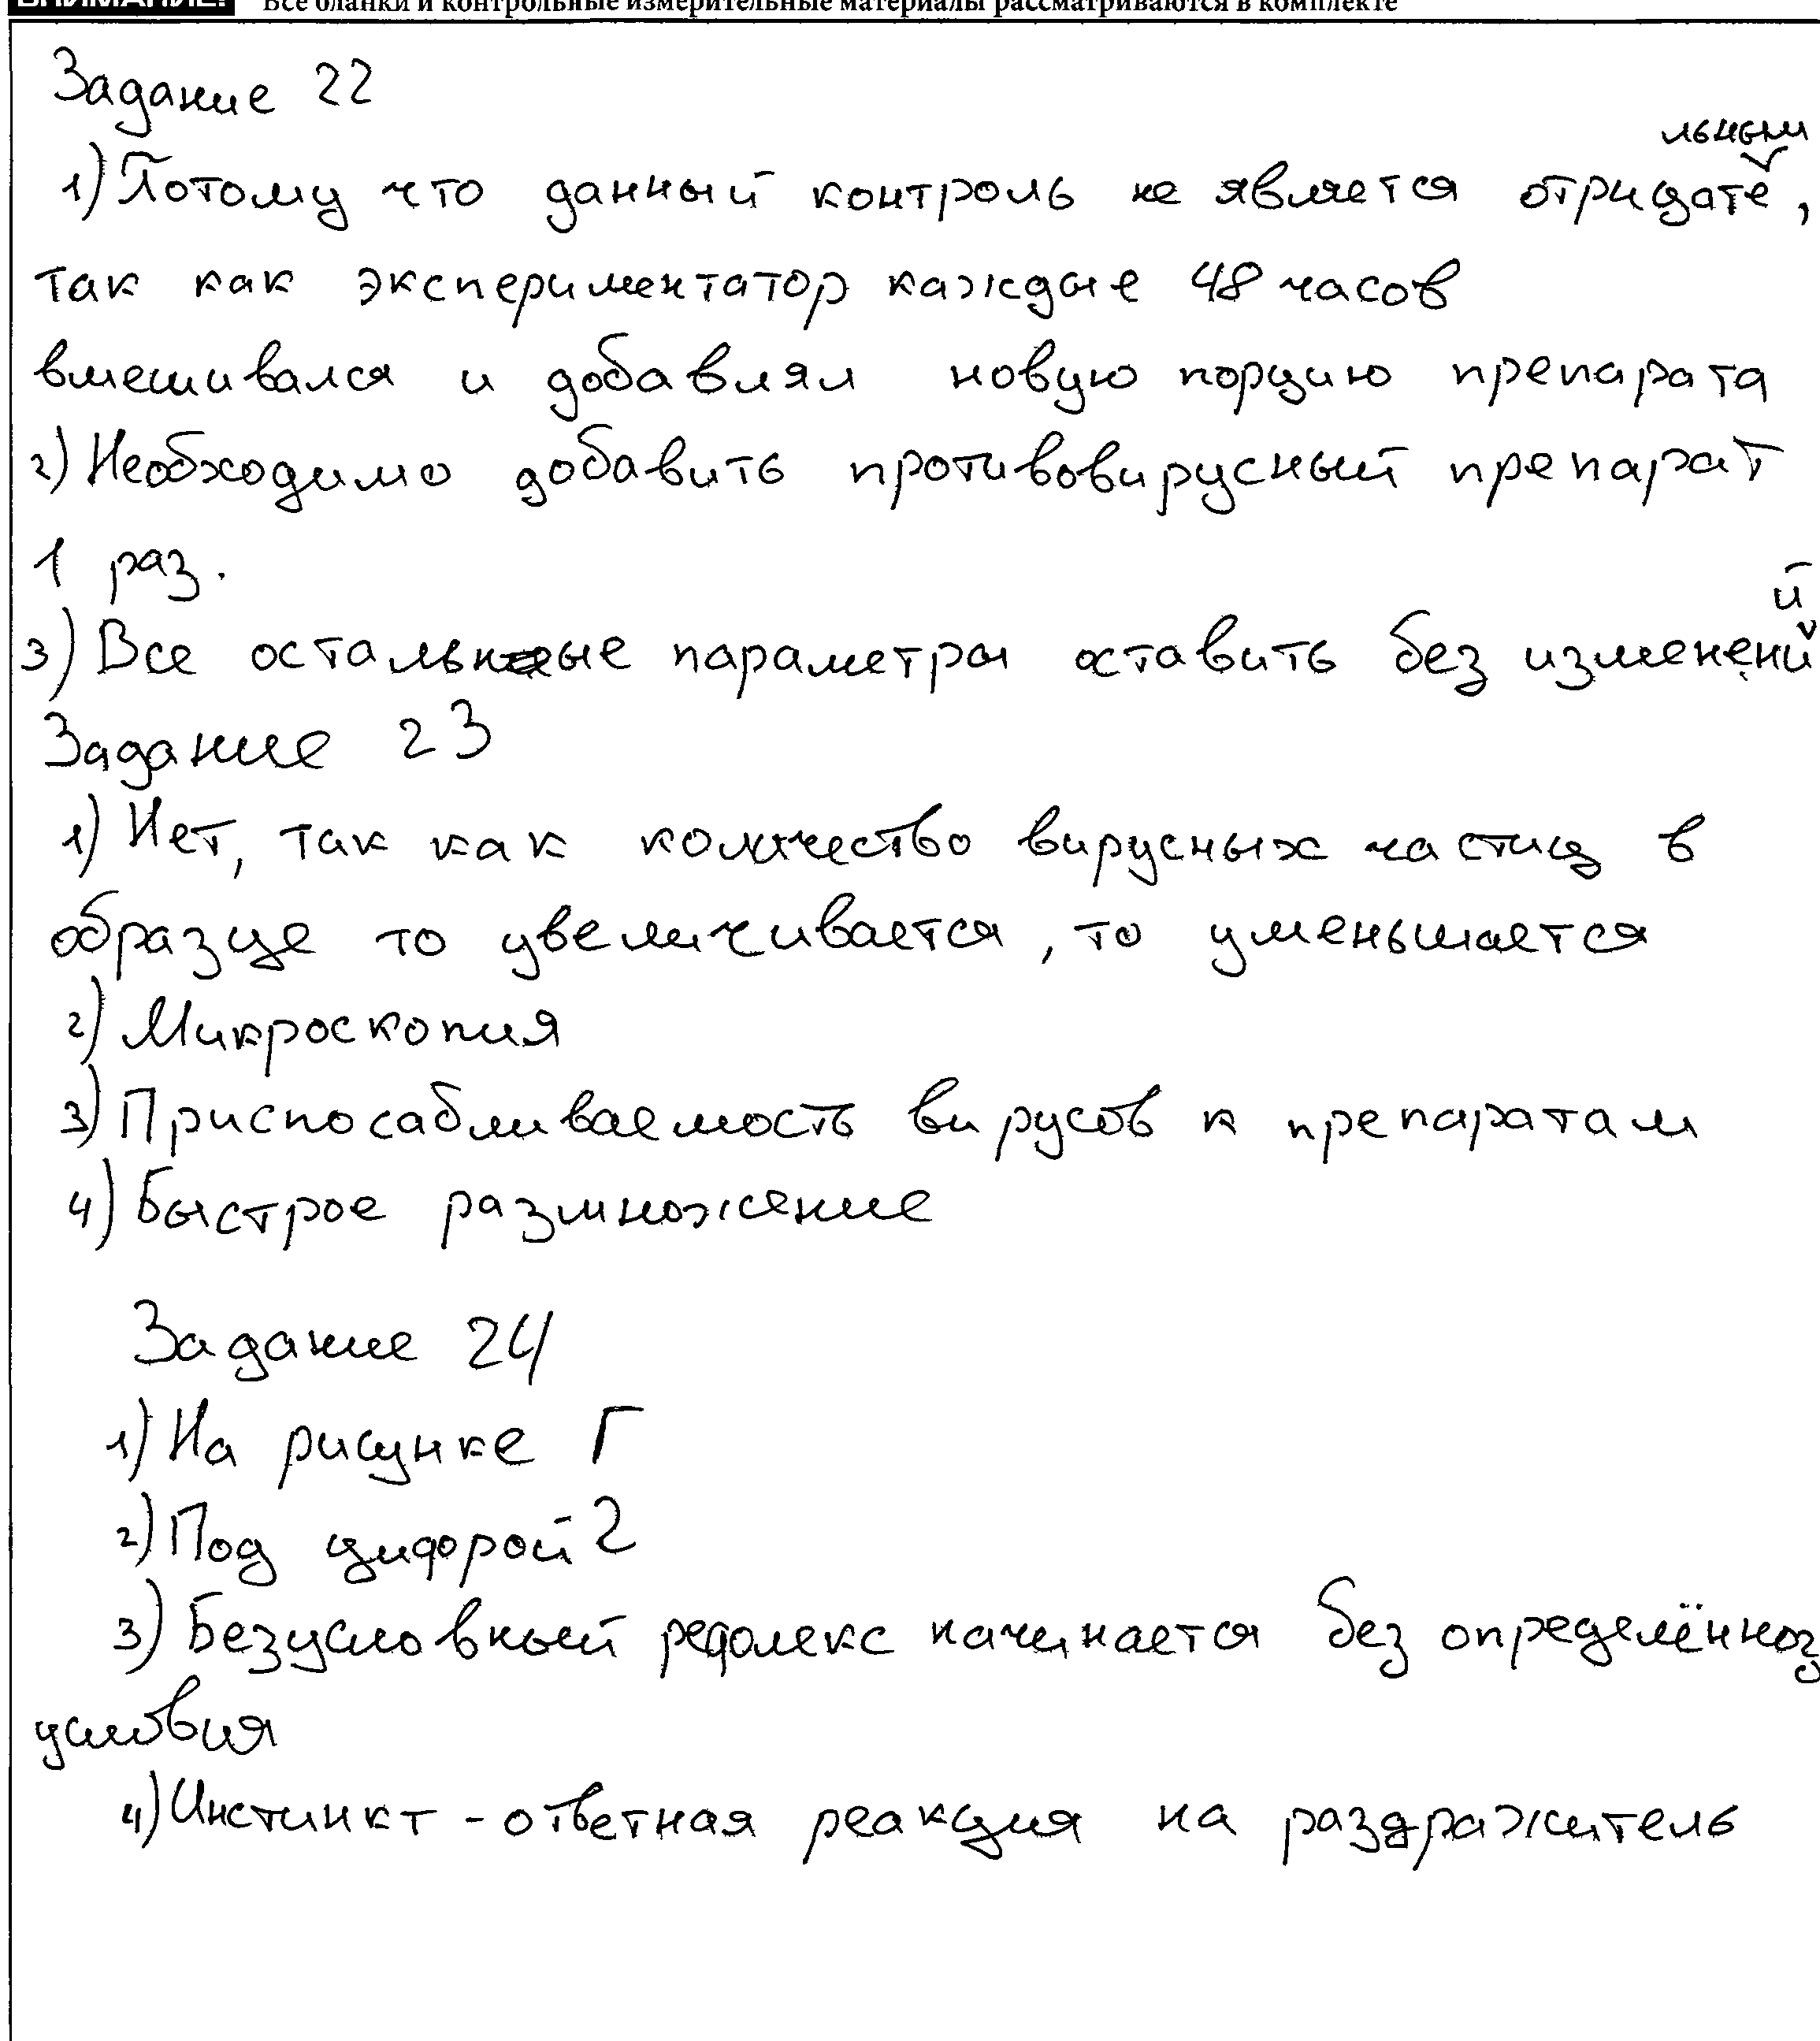 ВНИМАНИЕ! Все бланки и контрольные измерительные материалы рассматриваются в комплекте
Задание 22
1) Потому что данный контроль не является отрицательным,
так как экспериментатор каждые 48 часов
вмешивался и добавлял новую порцию препарата
2) Необходимо добавить противовирусный препарат
1 раз.
3) Все остальные параметры оставить без изменений
Задание 23
1) Нет, так как количество вирусных частиц в
образце то увеличивается, то уменьшается
2) Микроскопия
3) Приспосабливаемость вирусов к препаратам
4) Быстрое размножение
Задание 24
1) На рисунке Г
2) Под цифрой 2
3) Безусловный рефлекс начинается без определённог
условия
4) Инстинкт - ответная реакция на раздражитель